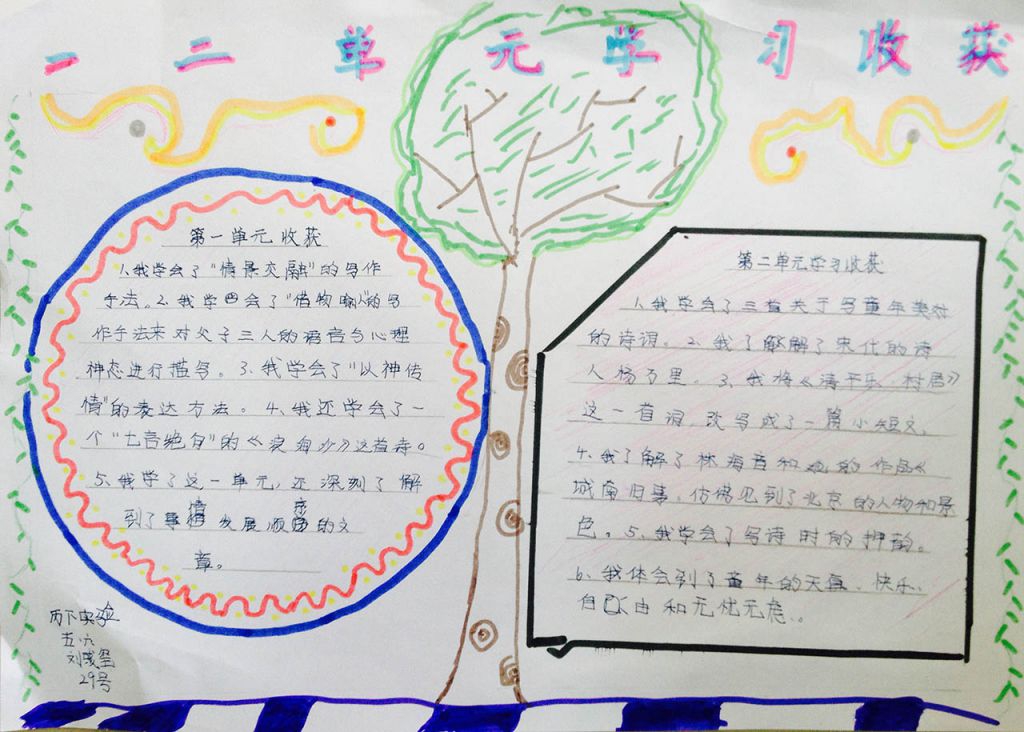 一二单元学习收获
第一单元收获
1、我学会了“情景交融”的写作
手法。2、我学会了“借物喻人”的写
作手法来对父子三人的语言与心理
神态进行描写。3、我学会了“以神传
情”的表达方法。4、我还学会了一
个“七言绝句”的《浪淘沙》这首诗。
5、我学了这一单元,还深刻了解
到了事情发展顺序的文
章。
第二单元学习收获
1、我学会了三首关于写童年美好
的诗词。2、我了解了宋代的诗
人杨万里。3、我将《清平乐·村居》
这一首词,改写成了一篇小短文。
4、我了解了林海音和她的作品《
城南旧事,仿佛见到了北京的人物和景
色。5、我学会了写诗时的押韵。
6、我体会到了童年的天真、快乐、
自由和无忧无虑。
历下实验
五·六
刘
29号